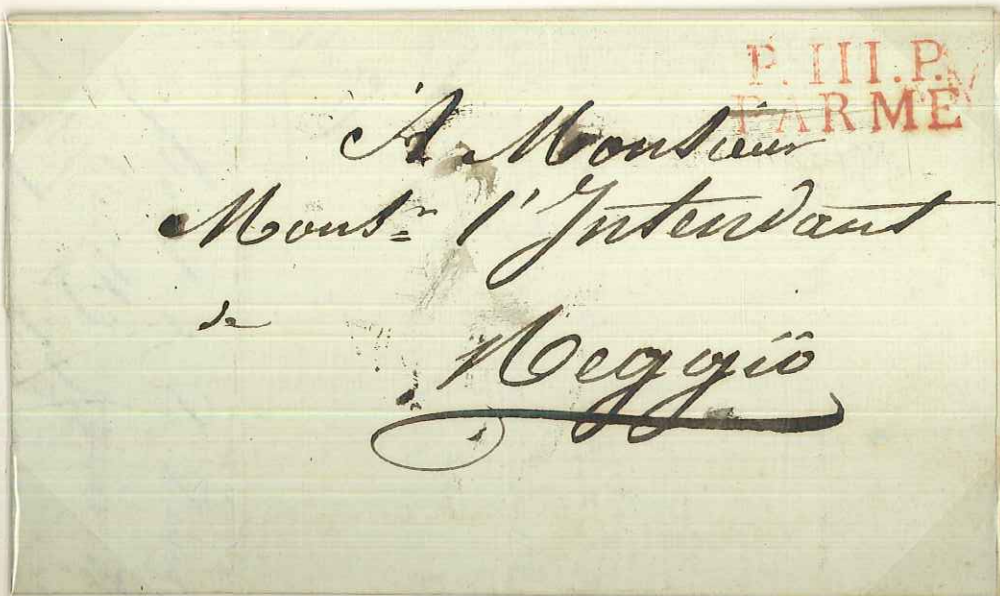 P. III. P.
PARME
A Monsieur
Mons.r l'Intendant
de
Reggiô